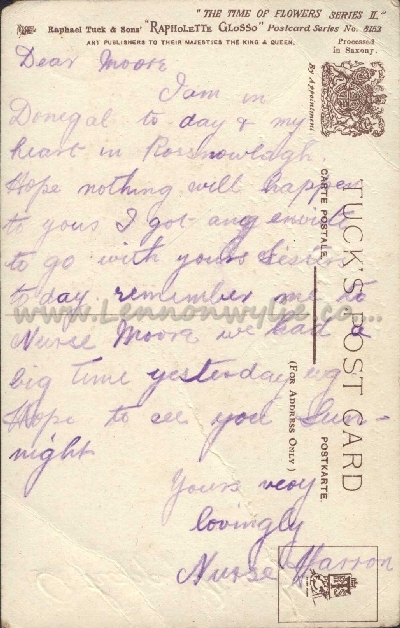 "THE TIME OF FLOWERS SERIES II."
Raphael Tuck & Sons' "RAPHOLETTE GLOSSO" Postcard Series No. 8153
ART PUBLISHERS TO THEIR MAJESTIES THE KING & QUEEN.
Processed
in Saxony.
By Appointment
Dear Moore
I am in
Donegal to day & my
heart in Rossnowlagh
Hope nothing will happen
to yours I got ang
to go with yours Sister
to day remember me to
Nurse Moore we had a
big time yesterday evg
Hope to see you Sun-
night
Yours very
lovingly
Nurse Harron
CARTE POSTALE
TUCK'S POST CARD
(FOR ADDRESS ONLY)
POSTKARTE
www.Lennonwylie.co....